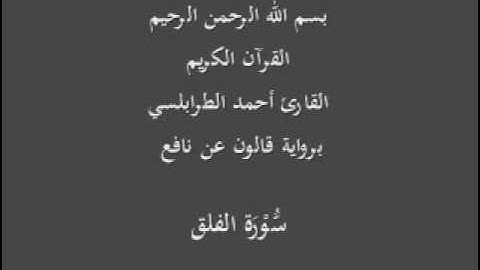 بسم الله الرحمن الرحيم
القرآن الكريم
القارئ أحمد الطرابلسي
برواية قالون عن نافع
سُّوْرَة الفلق